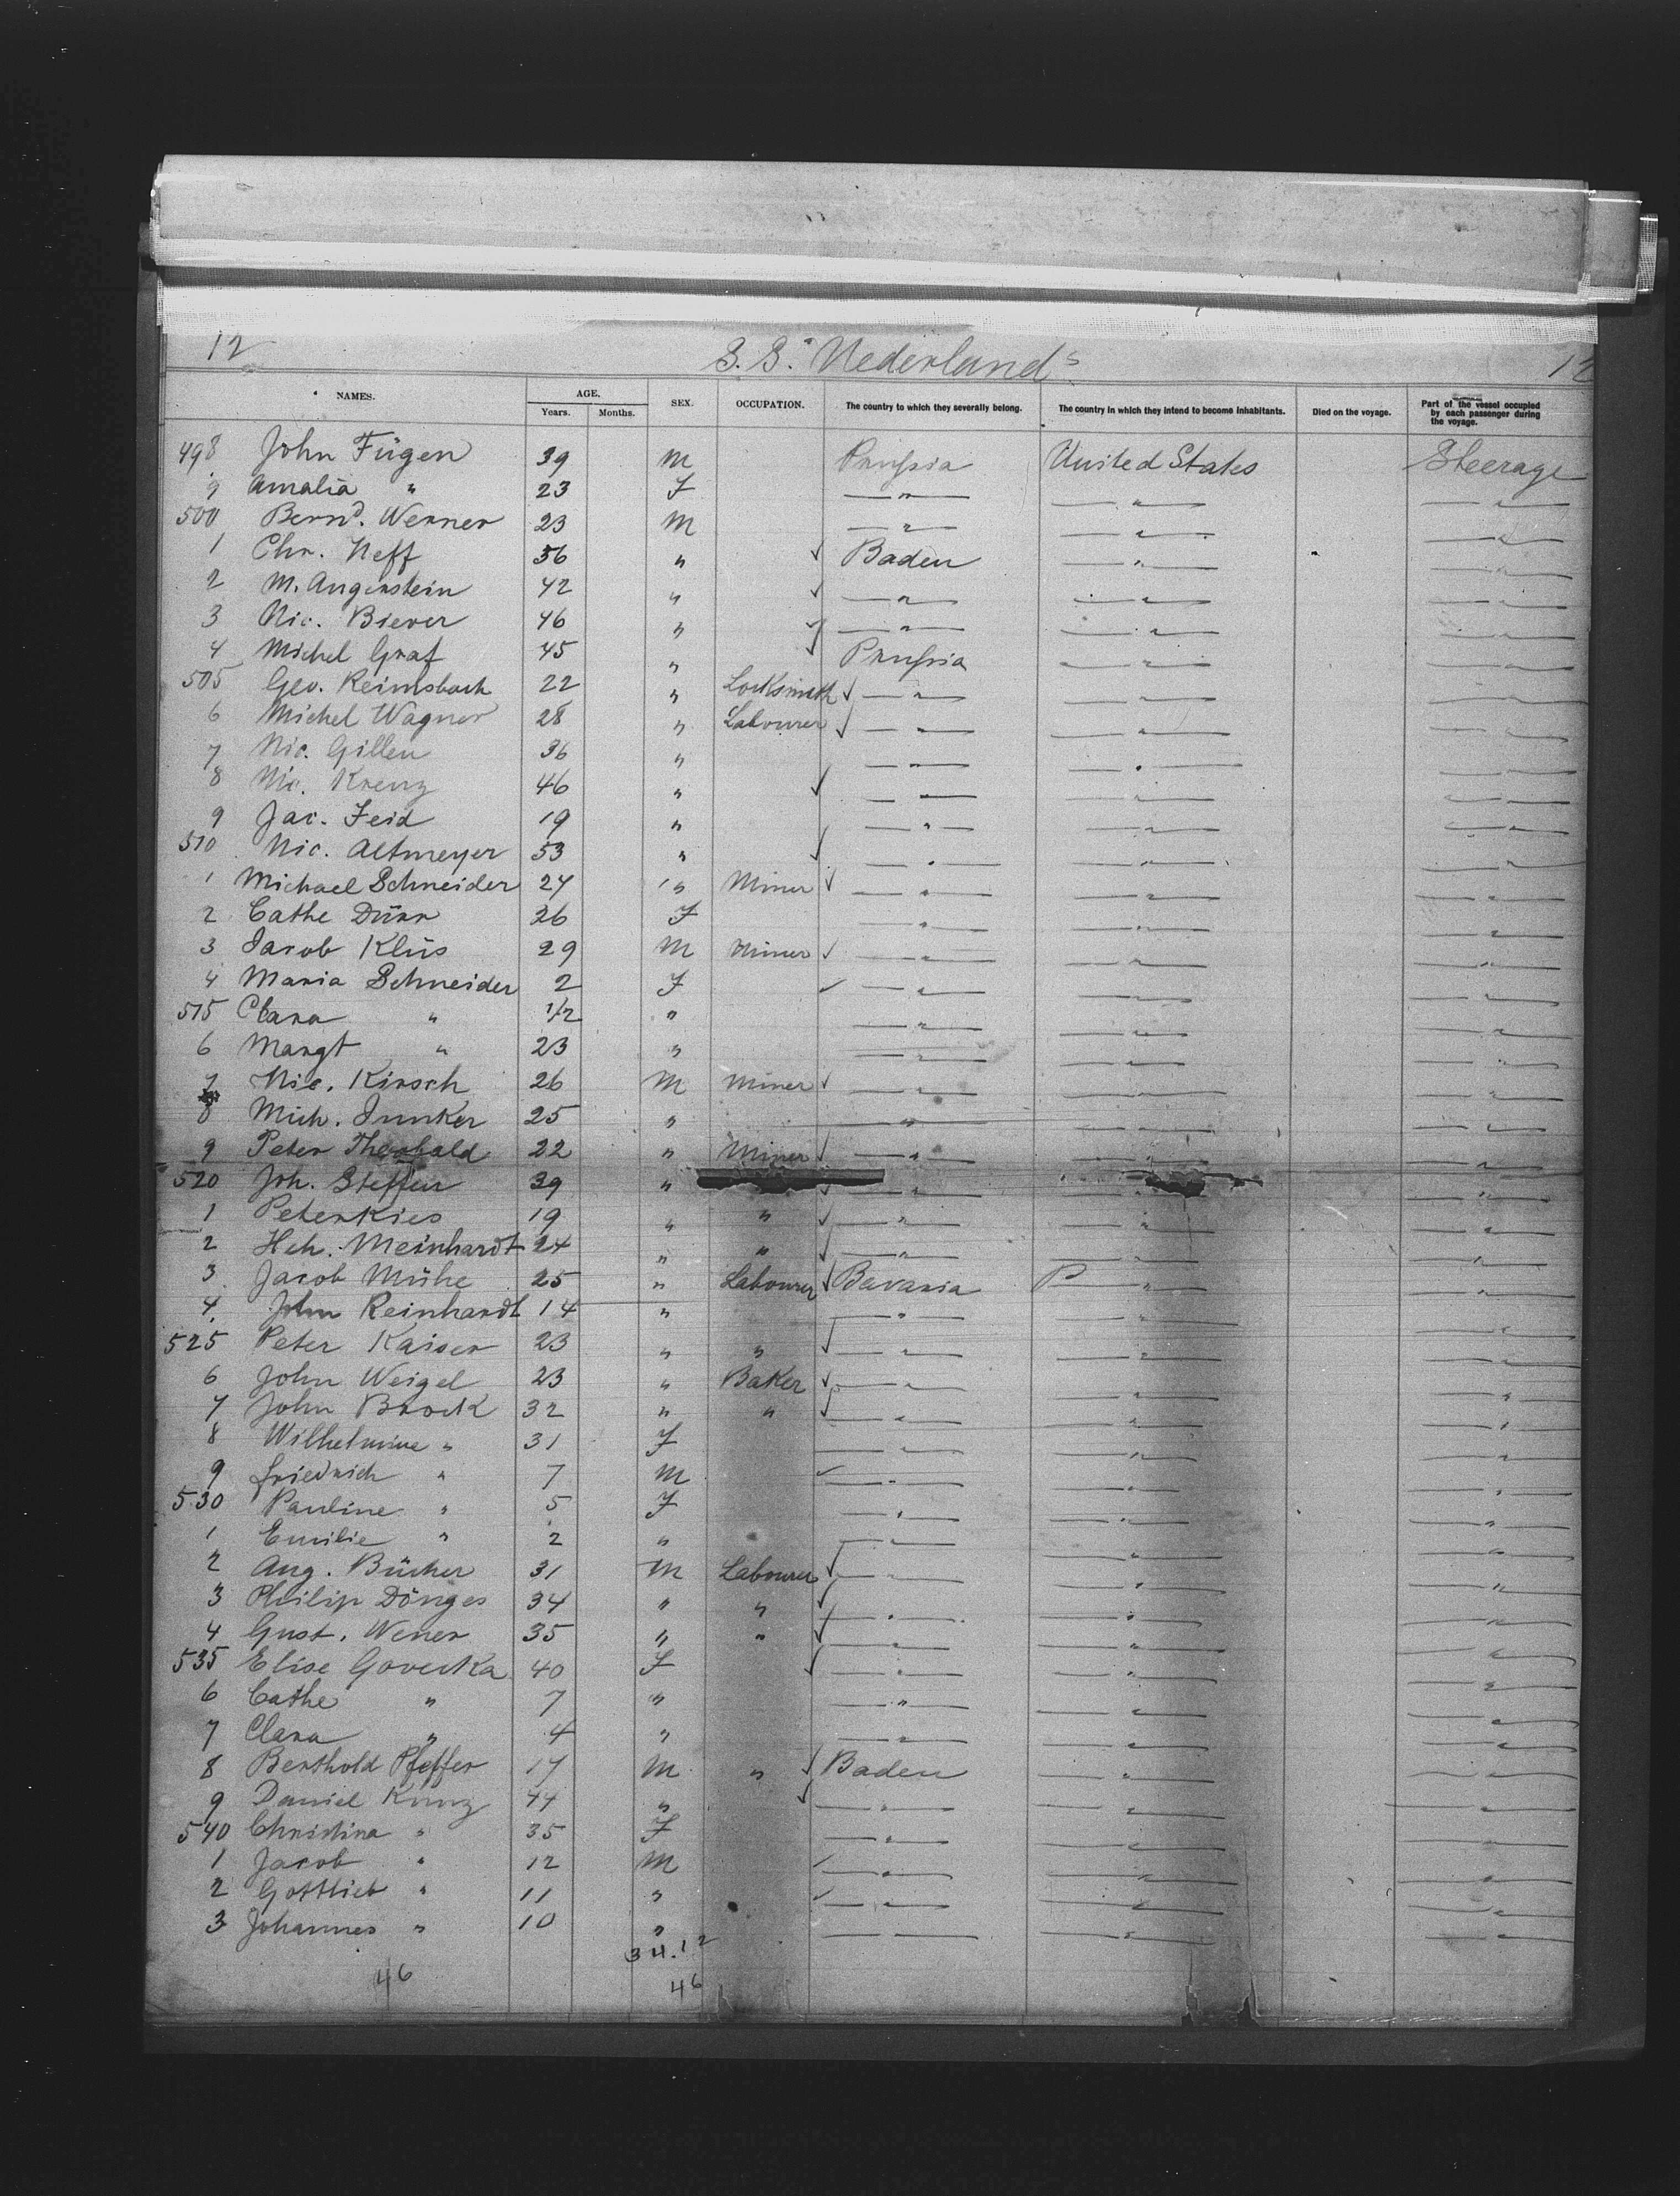 12 S.S. "Nederland" 12
NAMES. AGE. Years. Months. SEX. OCCUPATION. The country to which they severally belong. The country in which they intend to become inhabitants. Died on the voyage. Part of the vessel occupied by each passenger during the voyage.
498 John Fügen 39 M Prussia United States Steerage
9 Amalia " 23 F — " — — " — — " —
500 Bernd. Werner 23 M — " — — " — — " —
1 Chr. Neff 36 " ✓ Baden — " — — " —
2 M. Augenstein 42 " ✓ — " — — " — — " —
3 Nic. Biever 46 " ✓ — " — — " — — " —
4 Michel Graf 45 " ✓ Prussia — " — — " —
505 Geo. Reimsbach 22 " Locksmith ✓ — " — — " — — " —
6 Michel Wagner 28 " Labourer ✓ — " — — " — — " —
7 Nic. Gillen 36 " — " — — " — — " —
8 Nic. Krenz 46 " ✓ — " — — " — — " —
9 Jac. Feid 19 " — " — — " — — " —
510 Nic. Altmeyer 53 " ✓ — " — — " — — " —
1 Michael Schneider 24 " Miner ✓ — " — — " — — " —
2 Cathe Dürr 26 F — " — — " — — " —
3 Jacob Klüs 29 M Miner ✓ — " — — " — — " —
4 Maria Schneider 2 F ✓ — " — — " — — " —
515 Clara " 1/2 " — " — — " — — " —
6 Margt " 23 " — " — — " — — " —
7 Nic. Kirsch 26 M Miner ✓ — " — — " — — " —
8 Mich. Junker 25 " — " — — " — — " —
9 Peter Theobald 22 " Miner ✓ — " — — " — — " —
520 Joh. Steffen 39 " ✓ — " — — " —
1 Peter Kies 19 " " ✓ — " — — " — — " —
2 Hch. Meinhardt 24 " " ✓ — " — — " — — " —
3 Jacob Mühe 25 " Labourer ✓ Bavaria P — " — — " —
4 John Reinhardt 14 " — " — — " — — " —
525 Peter Kaiser 23 " " ✓ — " — — " — — " —
6 John Weigel 23 " Baker ✓ — " — — " — — " —
7 John Brock 32 " " ✓ — " — — " — — " —
8 Wilhelmine " 31 F — " — — " — — " —
9 Friedrich " 7 M ✓ — " — — " — — " —
530 Pauline " 5 F — " — — " — — " —
1 Emilie " 2 " — " — — " — — " —
2 Aug. Bücher 31 M Labourer ✓ — " — — " — — " —
3 Philip Dönges 34 " " ✓ — " — — " — — " —
4 Gust. Wener 35 " " ✓ — " — — " — — " —
535 Elise Govecka 40 F ✓ — " — — " — — " —
6 Cathe " 7 " — " — — " — — " —
7 Clara " 4 " — " — — " — — " —
8 Berthold Pfeffer 17 M " ✓ Baden — " — — " —
9 Daniel Kunz 44 " ✓ — " — — " — — " —
540 Christina " 35 F — " — — " — — " —
1 Jacob " 12 M ✓ — " — — " — — " —
2 Gottlieb " 11 " ✓ — " — — " — — " —
3 Johannes " 10 " — " — — " — — " —
34.12
46 46